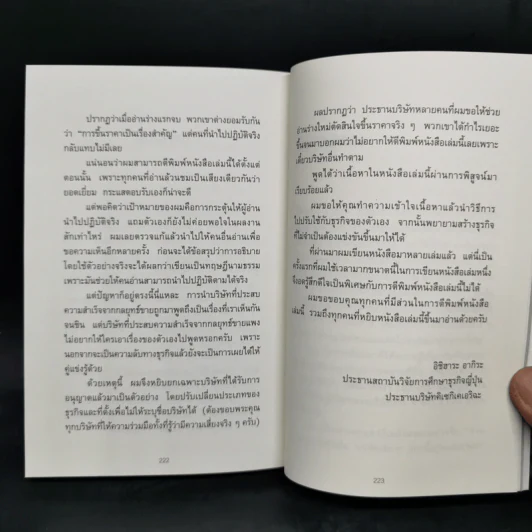 ปรากฏว่าเมื่ออ่านร่างแรกจบ พวกเขาต่างยอมรับกัน
ว่า “การขึ้นราคาเป็นเรื่องสำคัญ” แต่คนที่นำไปปฏิบัติจริง
กลับแทบไม่มีเลย
แน่นอนว่าผมสามารถตีพิมพ์หนังสือเล่มนี้ได้ตั้งแต่
ตอนนั้น เพราะทุกคนที่อ่านต้นฉบับชมเป็นเสียงเดียวกันว่า
ยอดเยี่ยม กระแสตอบรับเองก็น่าจะดี
แต่พอคิดว่าเป้าหมายของผมคือการกระตุ้นให้ผู้อ่าน
นำไปปฏิบัติจริง แถมตัวเองก็ยังไม่ค่อยพอใจในผลงาน
สักเท่าไหร่ ผมเลยตรวจแก้แล้วนำไปให้คนอื่นอ่านเพื่อ
ขอความเห็นอีกหลายครั้ง ก่อนจะได้ข้อสรุปว่าการอธิบาย
โดยใช้ตัวอย่างจริงจะได้ผลกว่าเขียนเป็นทฤษฎีนามธรรม
เพราะมันช่วยให้คนอ่านสามารถนำไปปฏิบัติตามได้จริง
แต่ปัญหาก็อยู่ตรงนี้นี่แหละ การนำบริษัทที่ประสบ
ความสำเร็จจากกลยุทธ์ขายถูกมาพูดถึงเป็นเรื่องที่เราเห็นกัน
จนชิน แต่บริษัทที่ประสบความสำเร็จจากกลยุทธ์ขายแพง
ไม่อยากให้ใครเอาเรื่องของตัวเองไปพูดหรอกครับ เพราะ
นอกจากจะเป็นความลับทางธุรกิจแล้วยังจะเป็นการเผยไต๋ให้
คู่แข่งรู้ด้วย
ด้วยเหตุนี้ ผมจึงหยิบยกเฉพาะบริษัทที่ได้รับการ
อนุญาตแล้วมาเป็นตัวอย่าง โดยปรับเปลี่ยนประเภทของ
ธุรกิจและที่ตั้งเพื่อไม่ให้ระบุชื่อบริษัทได้ (ต้องขอบพระคุณ
ทุกบริษัทที่ให้ความร่วมมือทั้งที่รู้ว่ามีความเสี่ยงจริง ๆ ครับ)
222
ผลปรากฏว่า ประธานบริษัทหลายคนที่ผมขอให้ช่วย
อ่านร่างใหม่ตัดสินใจขึ้นราคาจริง ๆ พวกเขาได้กำไรเยอะ
ขึ้นจนมาบอกผมว่าไม่อยากให้ตีพิมพ์หนังสือเล่มนี้เลยเพราะ
เดี๋ยวบริษัทอื่นทำตาม
พูดได้ว่าเนื้อหาในหนังสือเล่มนี้ผ่านการพิสูจน์มา
เรียบร้อยแล้ว
ผมขอให้คุณทำความเข้าใจเนื้อหาแล้วนำวิธีการ
ไปปรับใช้กับธุรกิจของตัวเอง จากนั้นพยายามสร้างธุรกิจ
ที่ไม่จำเป็นต้องแข่งขันขึ้นมาให้ได้
ที่ผ่านมาผมเขียนหนังสือมาหลายเล่มแล้ว แต่นี่เป็น
ครั้งแรกที่ผมใช้เวลามากขนาดนี้ในการเขียนหนังสือเล่มหนึ่ง
จึงอดรู้สึกดีใจเป็นพิเศษกับการตีพิมพ์หนังสือเล่มนี้ไม่ได้
ผมขอขอบคุณทุกคนที่มีส่วนในการตีพิมพ์หนังสือ
เล่มนี้ รวมถึงทุกคนที่หยิบหนังสือเล่มนี้ขึ้นมาอ่านด้วยครับ
อิชิฮาระ อากิระ
ประธานสถาบันวิจัยการศึกษาธุรกิจญี่ปุ่น
ประธานบริษัท
223